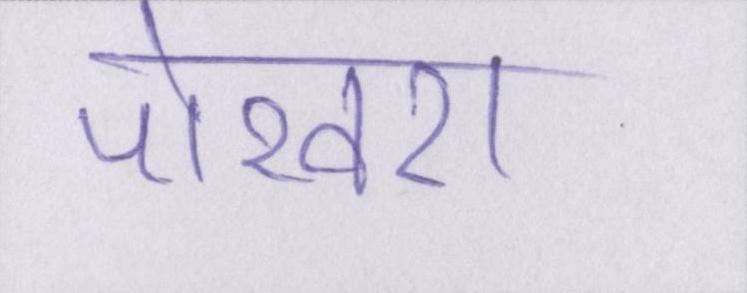 पोखरा